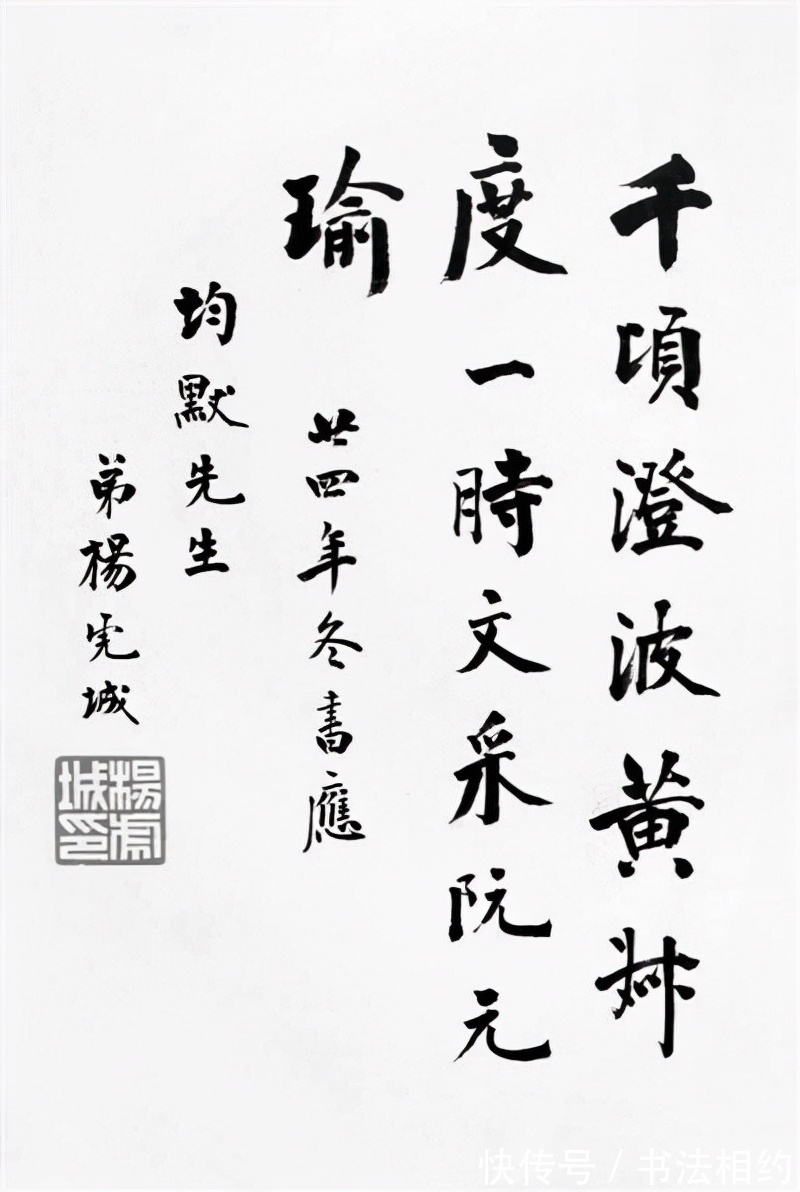 千頃澄波黄叔
度一時文采阮元
瑜
廿四年冬書應
均默先生
弟楊虎城
楊虎城印
快传号 / 书法相约